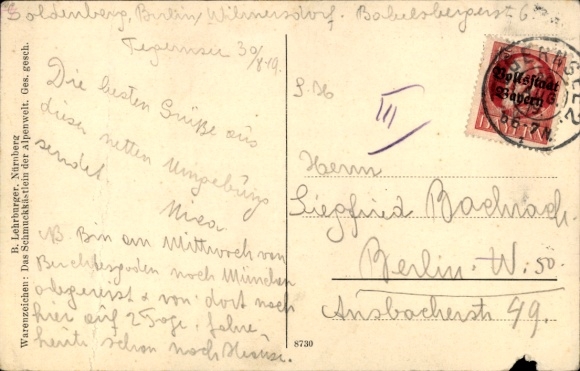 Goldenberg, Berlin, Wilmersdorf. Babelsbergerst 6.
Tegernsee 30/8.19.
Die besten Grüße aus
dieser netten Umgebung
sendet
NB. Bin am Mittwoch von
Berchtesgaden nach München
abgereist & von dort nach
hier auf 2 Tage, fahre
heute schon nach Hause.
B. Lehrburger, Nürnberg
Warenzeichen: Das Schmuckkästlein der Alpenwelt. Ges. gesch.
S. H
III
Volksstaat
Bayern
Herrn
Siegfried Bachrach
Berlin. W. 50.
Ansbacherstr 49.
8730